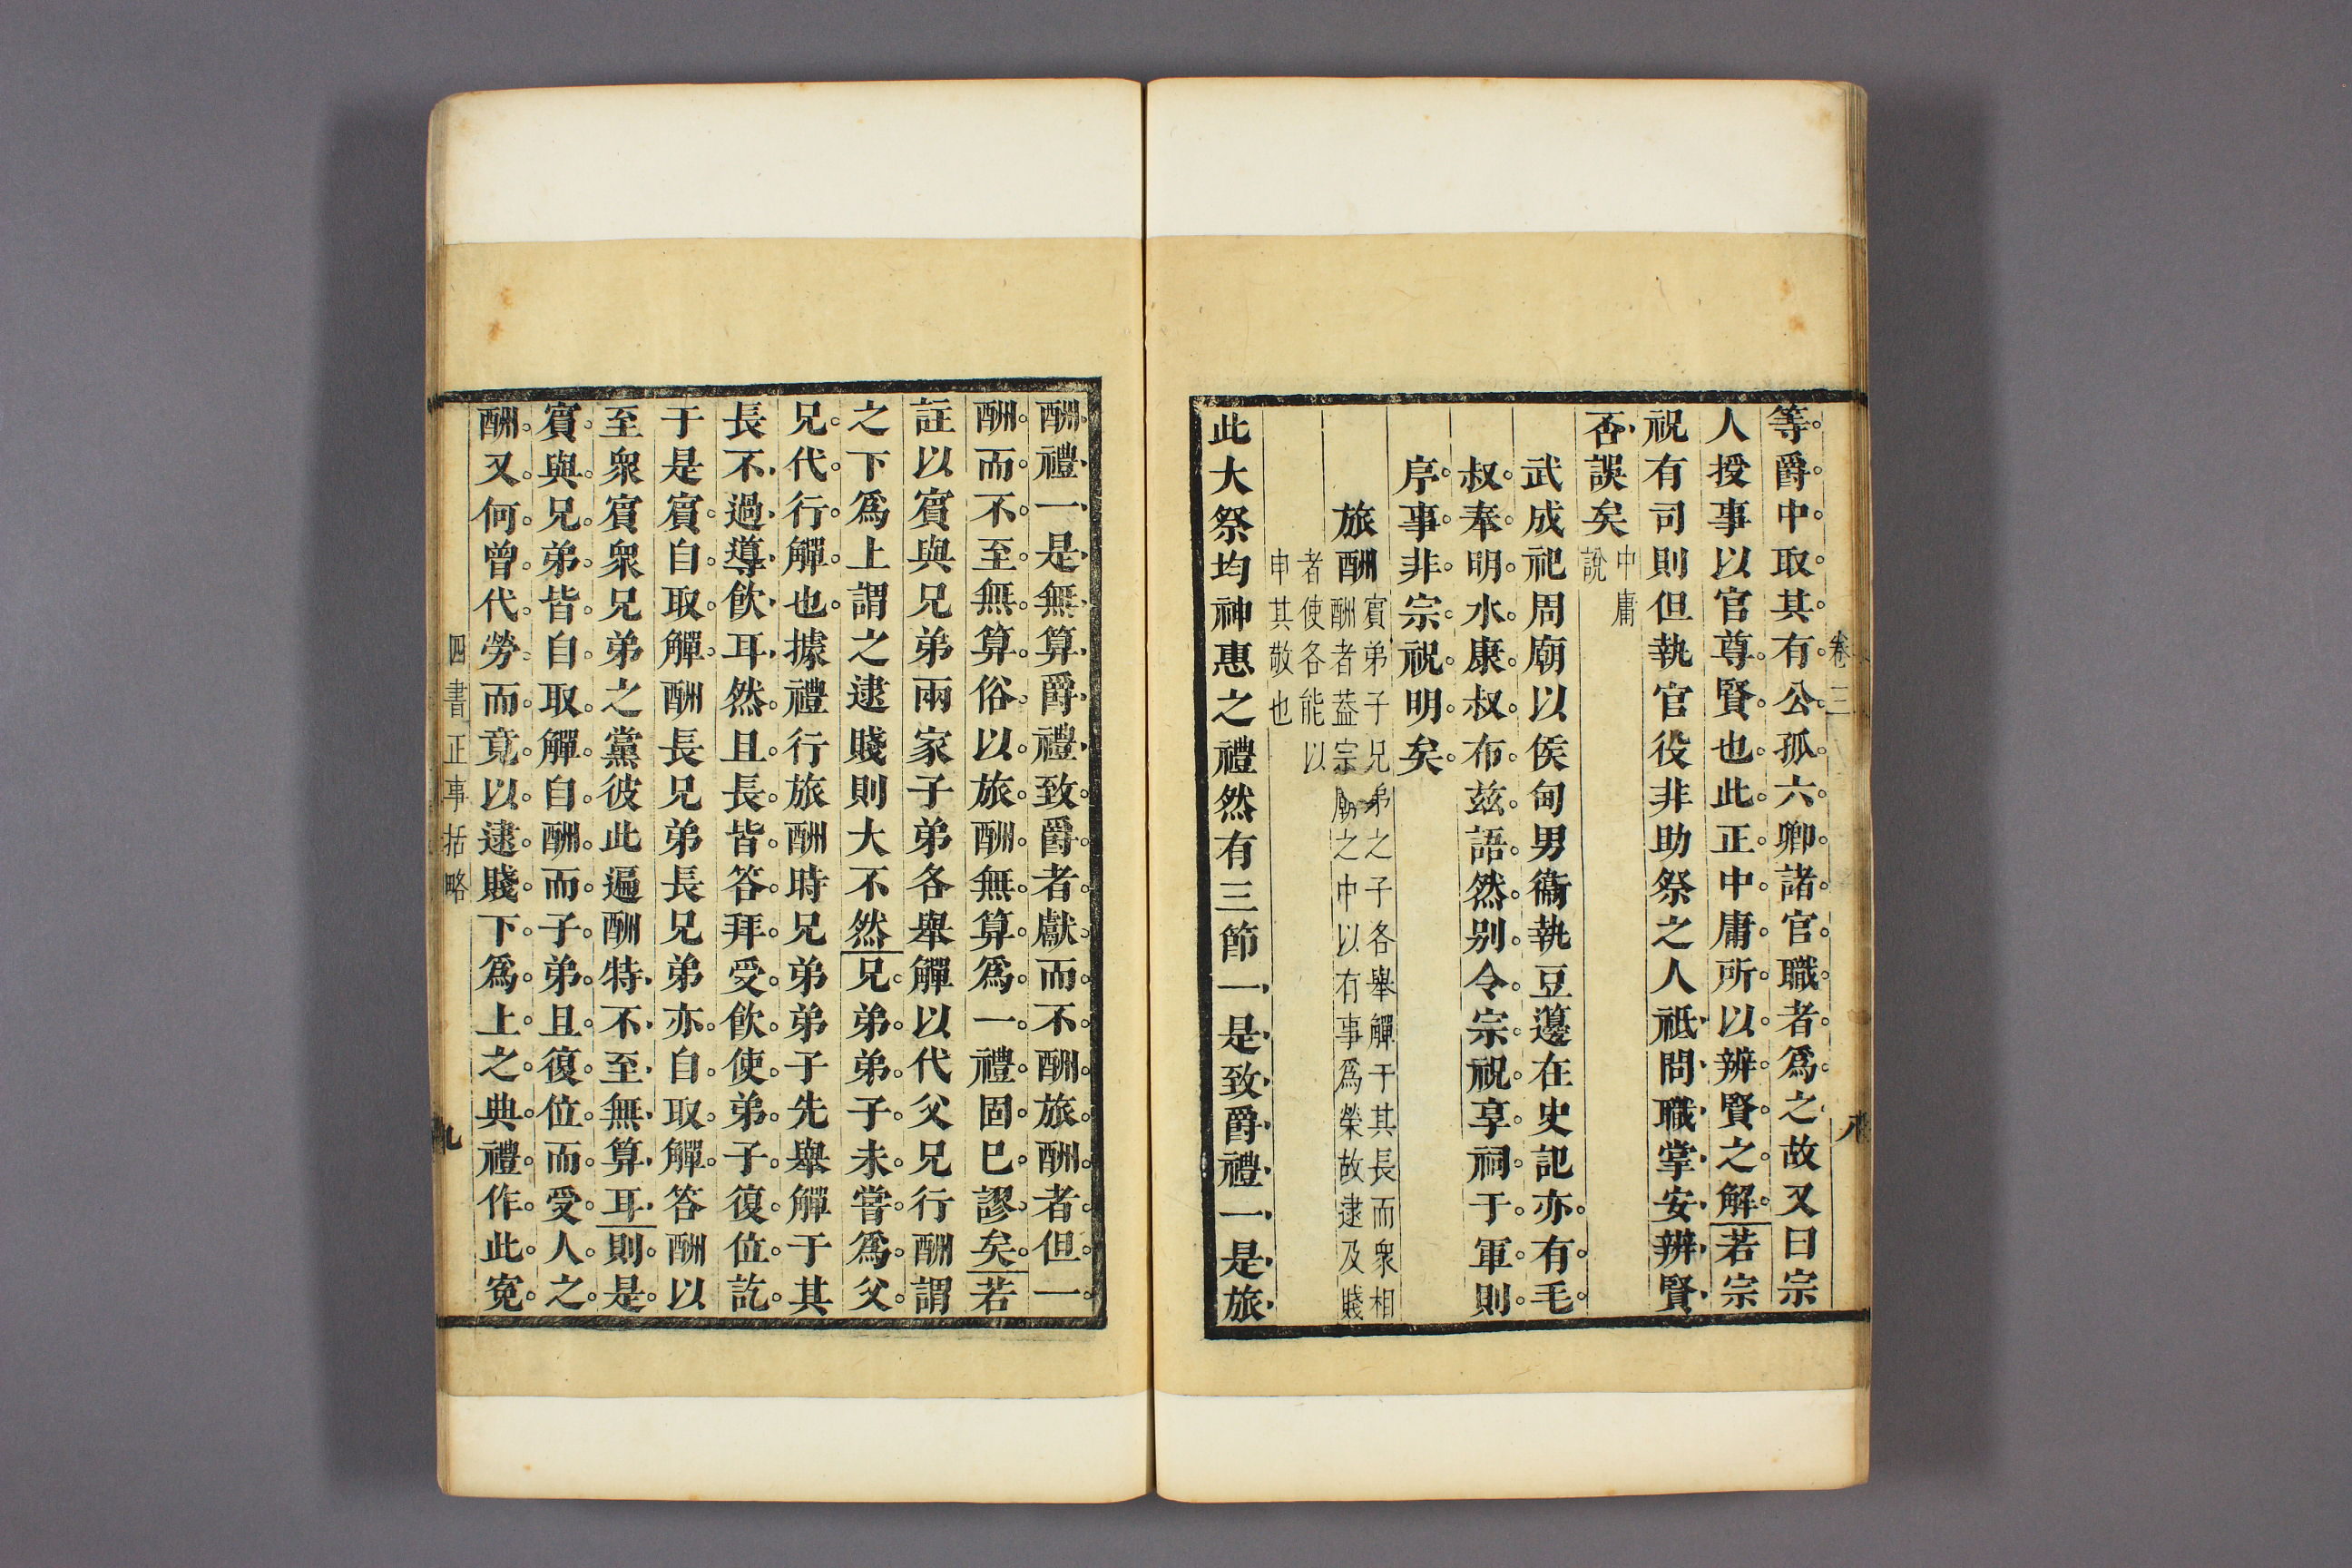 卷三
八
等爵中取其有公孤六卿諸官職者爲之故又曰宗
人授事以官尊賢也此正中庸所以辨賢之解若宗
祝有司則但執官役非助祭之人祗問職掌安辨賢
否誤矣中庸說
武成祀周廟以侯甸男衞執豆籩在史記亦有毛
叔奉明水康叔布茲語然别令宗祝享祠于軍則
序事非宗祝明矣
旅酬賓弟子兄弟之子各舉觶于其長而衆相
酬者葢宗廟之中以有事爲榮故逮及賤
者使各能以
申其敬也
此大祭均神惠之禮然有三節一是致爵禮一是旅
酬禮一是無算爵禮致爵者獻而不酬旅酬者但一
酬而不至無算俗以旅酬無算爲一禮固已謬矣若
註以賓與兄弟兩家子弟各舉觶以代父兄行酬謂
之下爲上謂之逮賤則大不然兄弟弟子未嘗爲父
兄代行觶也據禮行旅酬時兄弟弟子先舉觶于其
長不過導飲耳然且長皆答拜受飲使弟子復位訖
于是賓自取觶酬長兄弟長兄弟亦自取觶答酬以
至衆賓衆兄弟之黨彼此遍酬特不至無算耳則是
賓與兄弟皆自取觶自酬而子弟且復位而受人之
酬又何曾代勞而竟以逮賤下爲上之典禮作此寃
四書正事括略
九